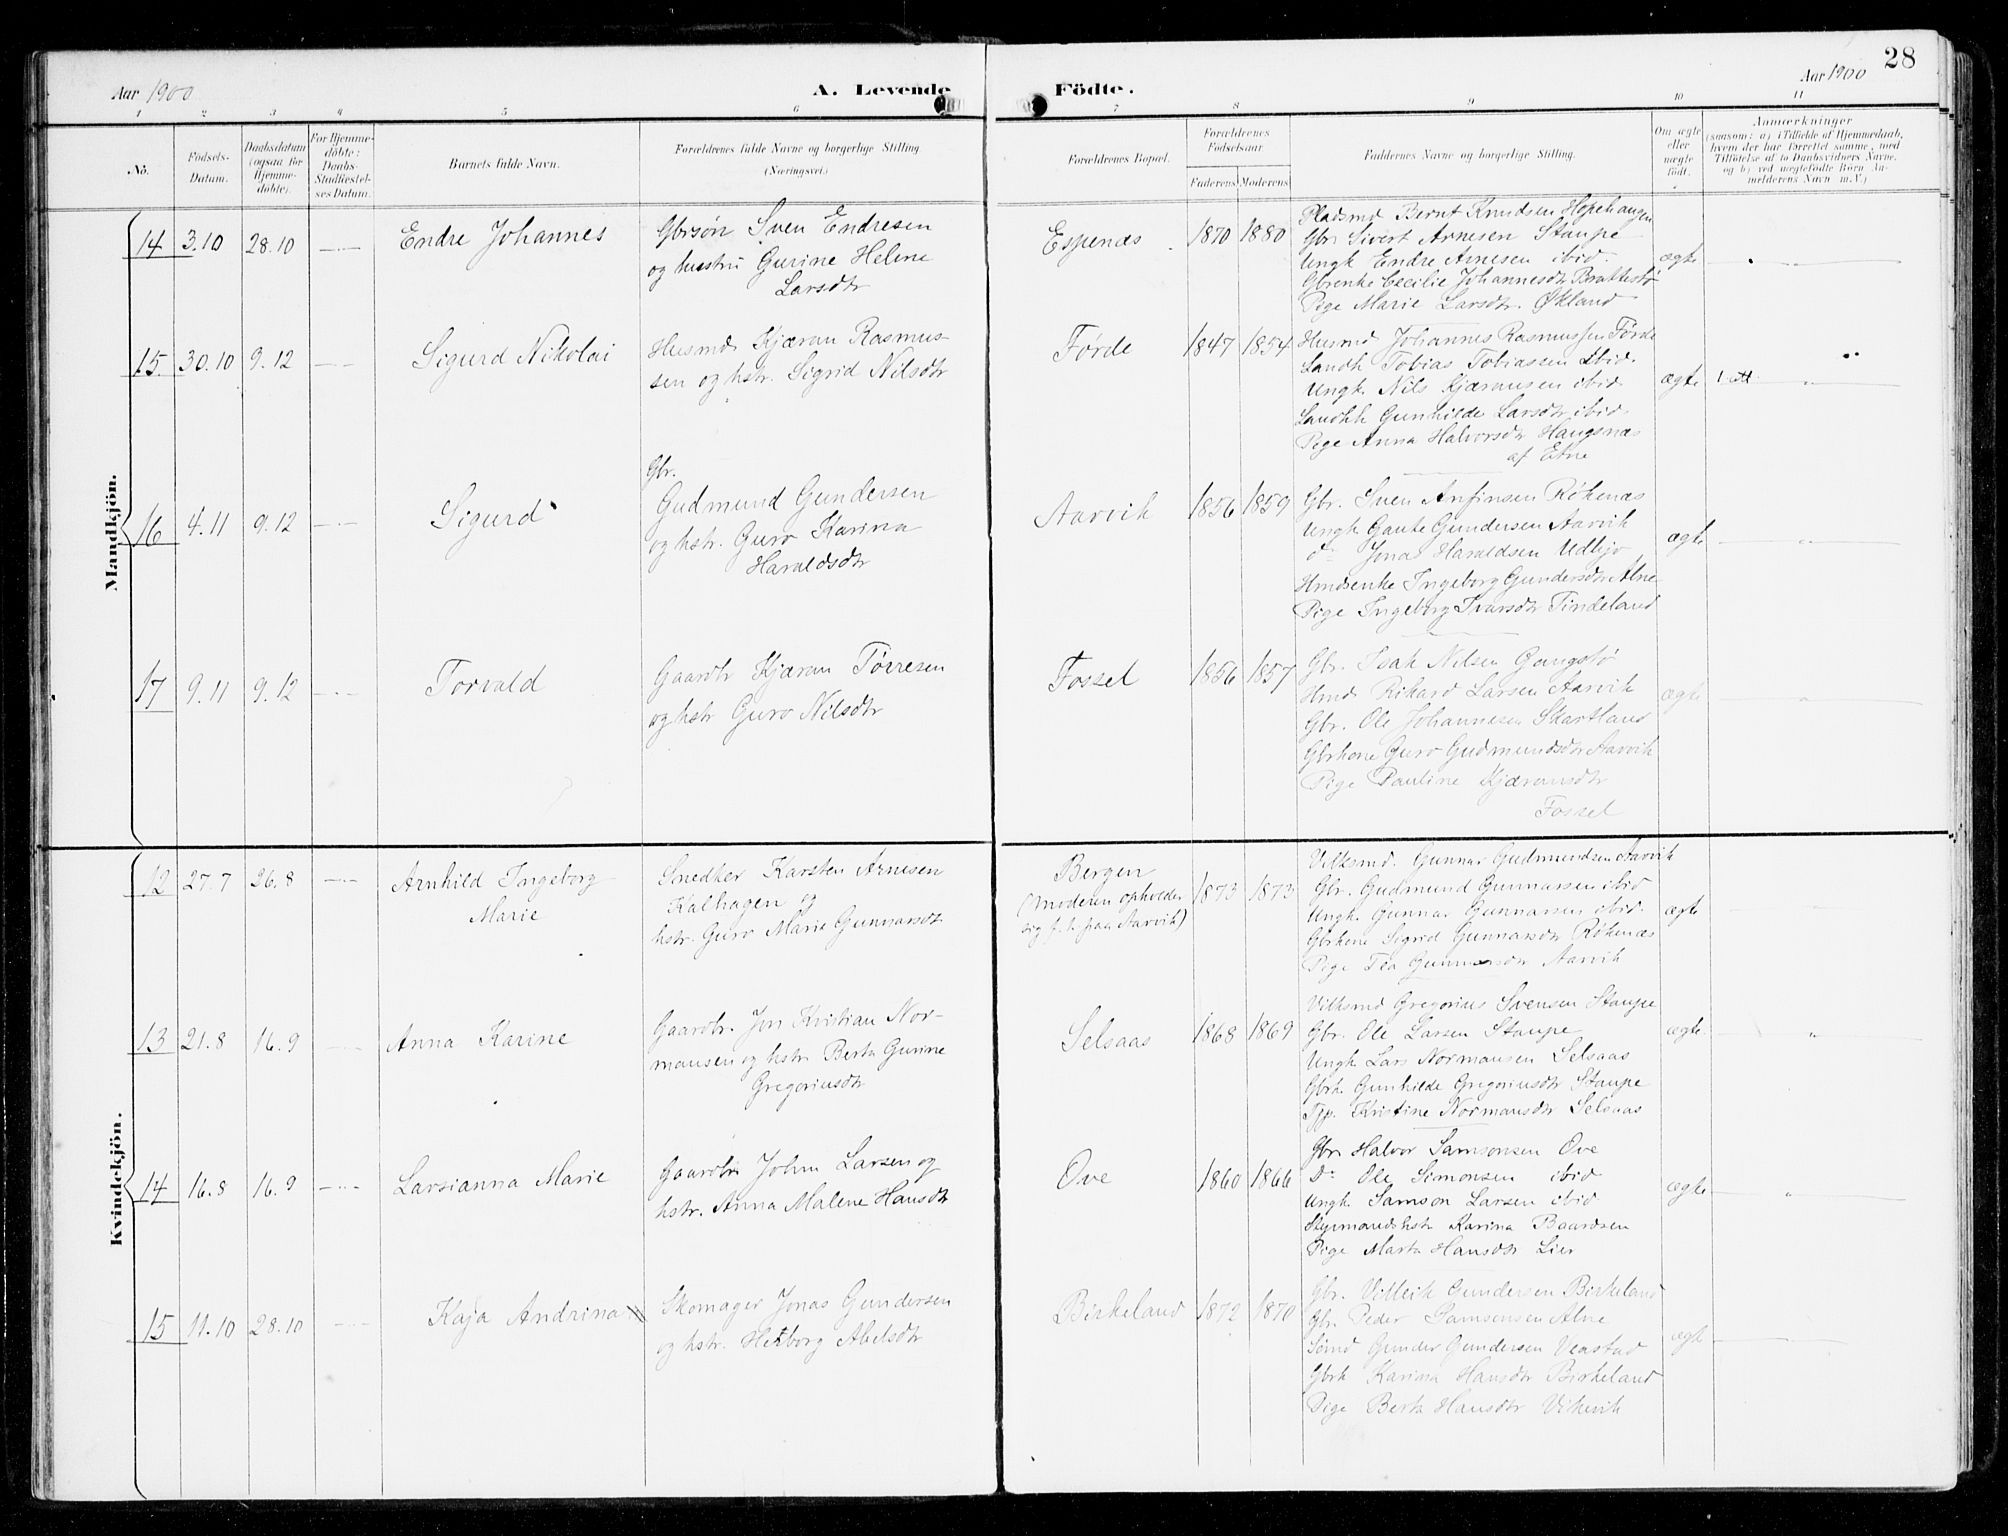 28
Aar 1900
A. Levende Födte.
Aar 1900
1 2 3 4 5 6 7 8 9 10 11
No.
Födsels-
Datum.
Daabsdatum
(ogsaa for
Hjemme-
döbte).
For Hjemme-
döbte:
Daabs-
Stadfæstel-
ses Datum.
Barnets fulde Navn.
Forældrenes fulde Navne og borgerlige Stilling.
(Næringsvei.)
Forældrenes Bopæl.
Forældrenes
Födselsaar.
Faderens. Moderens.
Faddernes Navne og borgerlige Stilling.
Om ægte
eller
uægte
födt.
Anmærkninger
(saasom: a) i Tilfælde af Hjemmedaab,
hvem der har forrettet samme, med
Tilföielse af to Daabsvidners Navne.
og b) ved uægtefödte Börn An-
melderens Navn m. V.)
Mandkjön.
14 3.10 28.10 Endre Johannes
Gbrsøn Sven Endresen
og hustru Gurine Helene
Larsdtr
Espenæs 1870 1880
Pladsmd Bernt Knudsen Hopehaugen
Gbr. Sivert Arnesen Staupe
Ungk Endre Arnesen ibid.
Gbrenke Cecilie Johannesdtr Brattestø
Pige Marie Larsdtr. Økland
ægte "
15 30.10 9.12 Sigurd Nikolai
Husmd. Kjæran Rasmus-
sen og hstr. Sigrid Nilsdtr
Førde 1847 1854
Husmd Johannes Rasmussen Førde
Landh Tobias Tobiassen ibid.
Ungk. Nils Kjæransen ibid
Landhk Gunhilde Larsdtr ibid.
Pige Anna Halvorsdtr Haugsnæs
af Etne
ægte "
16 4.11 9.12 Sigurd
Gbr.
Gudmund Gundersen
og hstr. Guro Karina
Haraldsdtr
Aarvik 1856 1859
Gbr. Sven Anfinsen Røkenæs
Ungk Gaute Gundersen Aarvik
do Jonas Haraldsen Udbjo
Hmdsenke Ingeborg Gundersdtr Alne
Pige Ingeborg Ivarsdtr Tindeland
ægte "
17 9.11 9.12 Torvald
Gaardbr Kjæran Tørresen
og hstr Guro Nilsdtr
Fossel 1856 1857
Gbr. Isak Nilsen Gangstø
Hmd Rikard Larsen Aarvik
Gbr. Ole Johannesen Skartland
Gbrkone Guro Gudmundsdtr Aarvik
Pige Pauline Kjæransdtr
Fossel
ægte "
Kvindekjön.
12 27.7 26.8 Arnhild Ingeborg
Marie
Snedker Karsten Arnesen
Kalhagen og
hstr. Guro Marie Gunnarsdtr
Bergen
(Moderen opholder
sig f. t. paa Aarvik)
1873 1873
Vilksmd. Gunnar Gudmundsen Aarvik
Gbr. Gudmund Gunnarsen ibid
Ungk. Gunnar Gunnarsen ibid.
Gbrkone Sigrid Gunnarsdtr Røkenæs
Pige Tea Gunnarsdtr Aarvik
ægte
13 21.8 16.9 Anna Karine
Gaardbr. Jon Kristian Nor-
mansen og hstr Berta Gurine
Gregoriusdtr
Selsaas 1868 1869
Vilksmd Gregorius Svensen Staupe
Gbr. Ole Larsen Staupe
Ungk Lars Normansen Selsaas
Gbrk. Gunhilde Gregoriusdtr Staupe
Tjp. Kristine Normansdtr Selsaas
ægte. "
14 16.8 16.9 Larsianna Marie
Gaardbr John Larsen og
hstr. Anna Malene Hansdtr
Ove 1860 1866
Gbr Halvor Samsonsen Ove
Do Ole Simonsen ibid
Ungk. Samson Larsen ibid
Styrmandshstr Karina Baardsen
Pige Marta Hansdtr Lier
ægte "
15 11.10 28.10 Kaja Andrina
Skomager Jonas Gundersen
og hstr. Herborg Abelsdtr
Birkeland 1872 1870
Gbr. Villeik Gundersen Birkeland
Gbr. Peder Samsonsen Alne
Sømd Gunder Gundersen Veastad
Gbrk Karina Hansdtr Birkeland
Pige Berta Hansdtr Vikevik
ægte